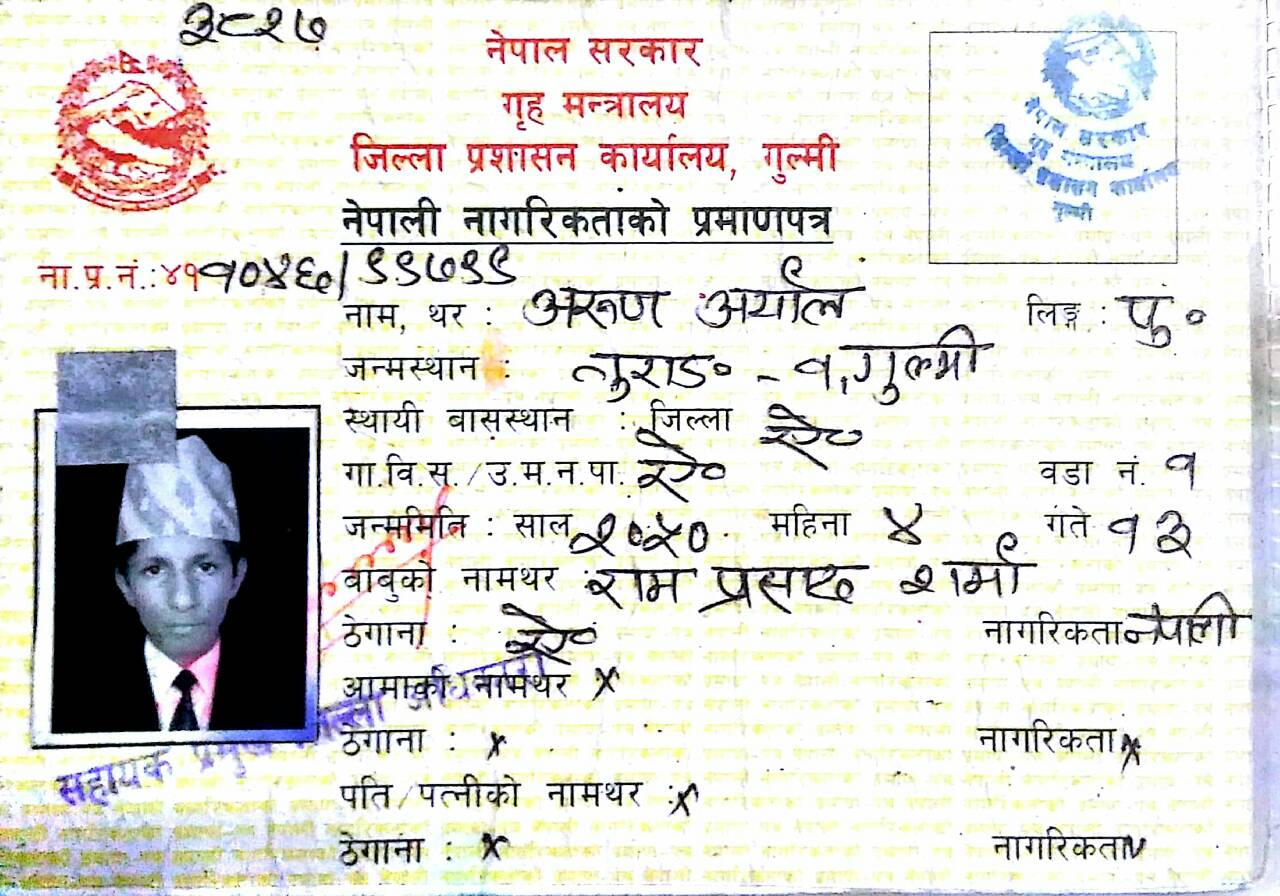 ३८२७
नेपाल सरकार
गृह मन्त्रालय
जिल्ला प्रशासन कार्यालय, गुल्मी
नेपाली नागरिकताको प्रमाणपत्र
नेपाल सरकार
गृह मन्त्रालय
जिल्ला प्रशासन कार्यालय
गुल्मी
ना.प्र.नं.:४११०४६/९९७९९
नाम, थर : अरूण अर्याल लिङ्ग : पु॰
जन्मस्थान : - १, गुल्मी
स्थायी बासस्थान : जिल्ला ऐ॰
गा.वि.स./उ.म.न.पा. ऐ॰ वडा नं. १
जन्ममिति : साल २०५० महिना ४ गते १३
बाबुको नामथर राम प्रसाद शर्मा
ठेगाना : ऐ॰ नागरिकता नेपाली
आमाको नामथर x
ठेगाना : x नागरिकता x
पति/पत्नीको नामथर : x
ठेगाना : x नागरिकता x
सहायक प्रमुख जिल्ला अधिकारी